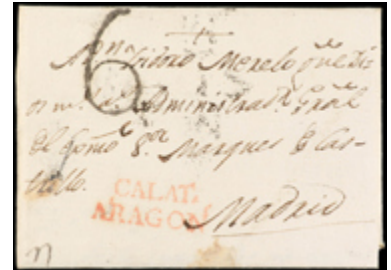 6
A Dn Isidoro Merelo que Di-
os m.s a.s Administrador Gral
del Exmo. Sr. Marques de Cas-
trillo.
CALAT.
ARAGON
Madrid